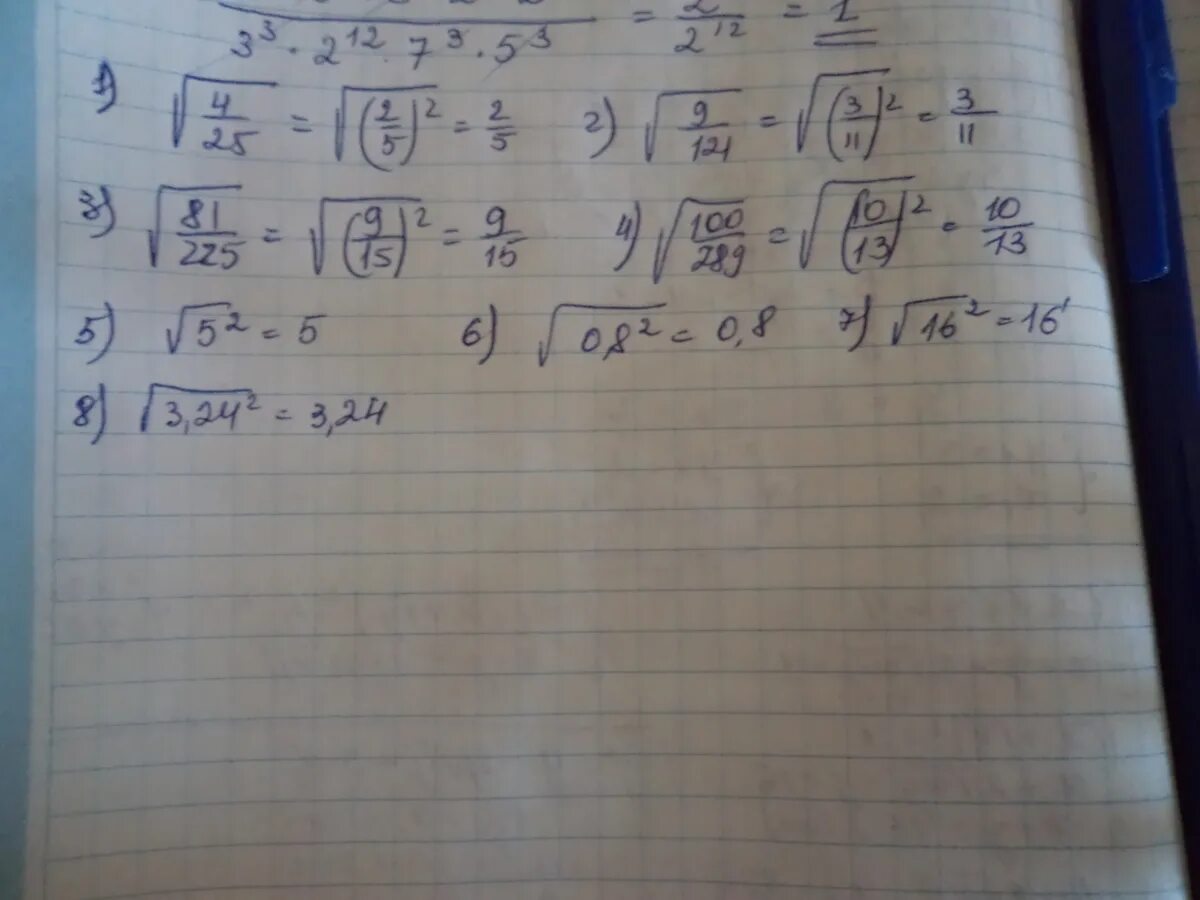 3³ · 2¹² · 7³ · 5³ = 2/2¹² = 1
1) √(4/25) = √((2/5)²) = 2/5 2) √(9/121) = √((3/11)²) = 3/11
3) √(81/225) = √((9/15)²) = 9/15 4) √(100/289) = √((10/13)²) = 10/13
5) √5² = 5 6) √0,8² = 0,8 7) √16² = 16
8) √3,24² = 3,24